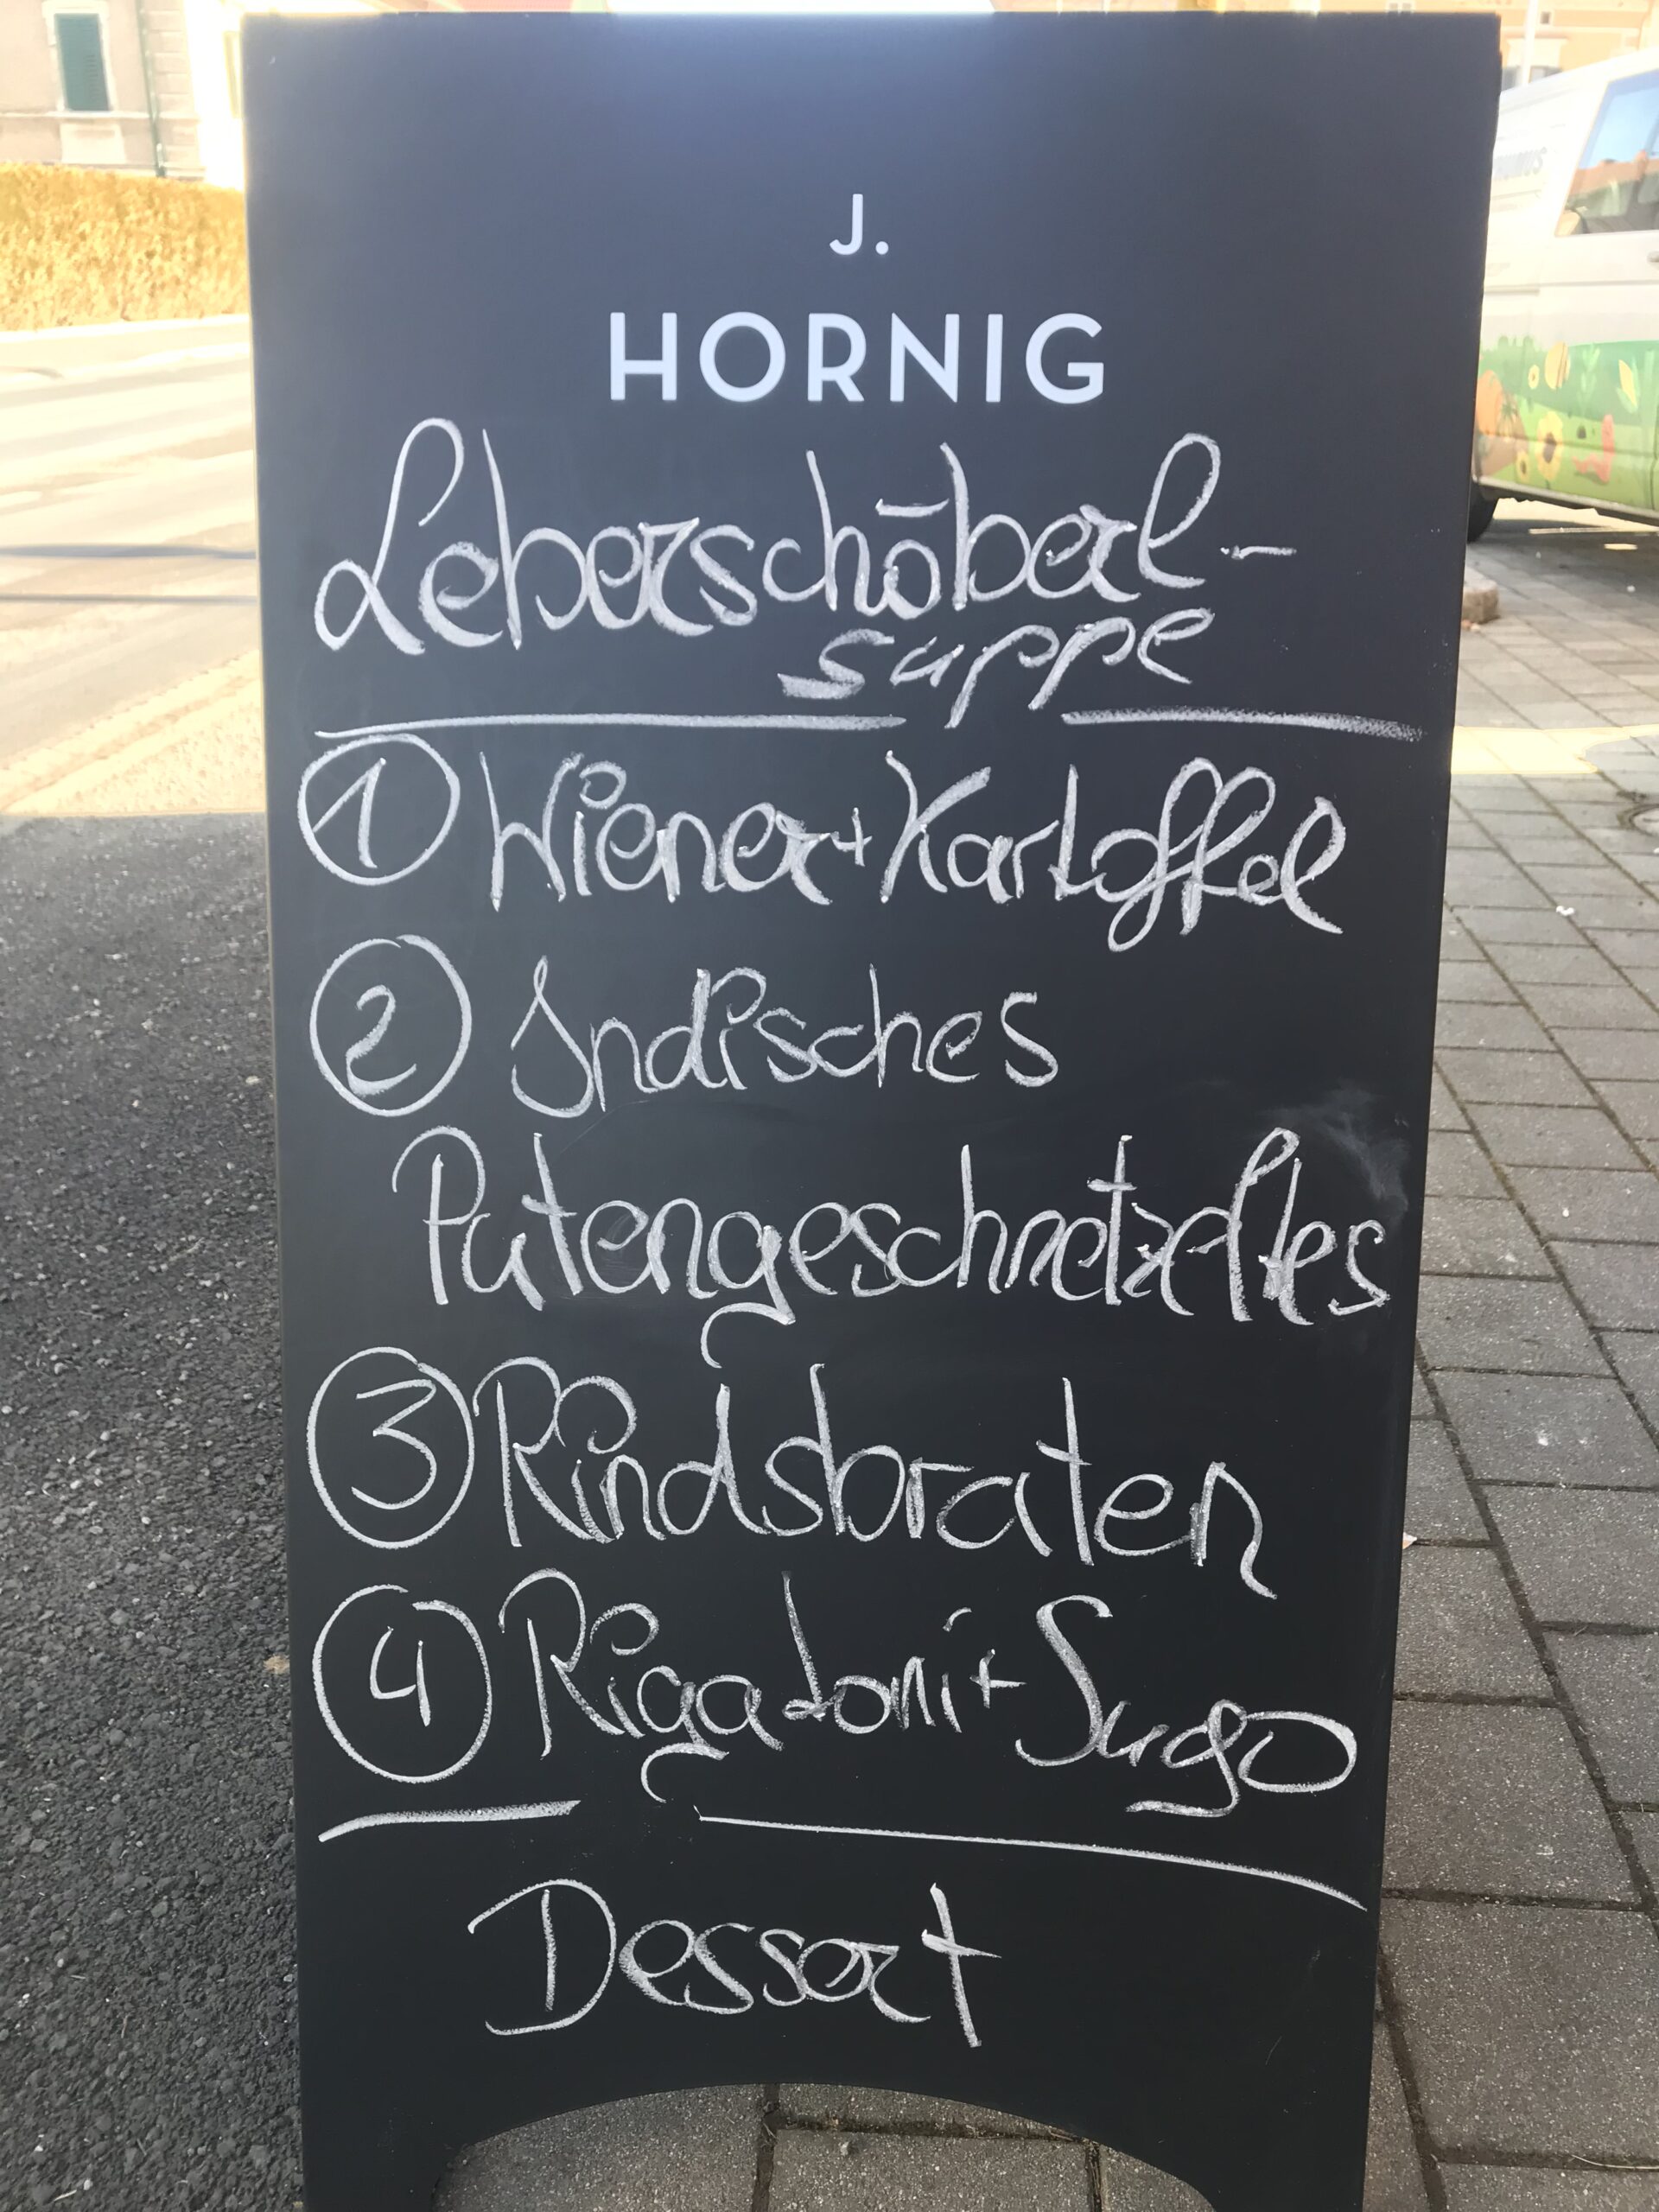 J.
HORNIG
Leberschöberl-
suppe
1 Wiener + Kartoffel
2 Indisches
Putengeschnetzeltes
3 Rindsbraten
4 Rigatoni + Sugo
Dessert